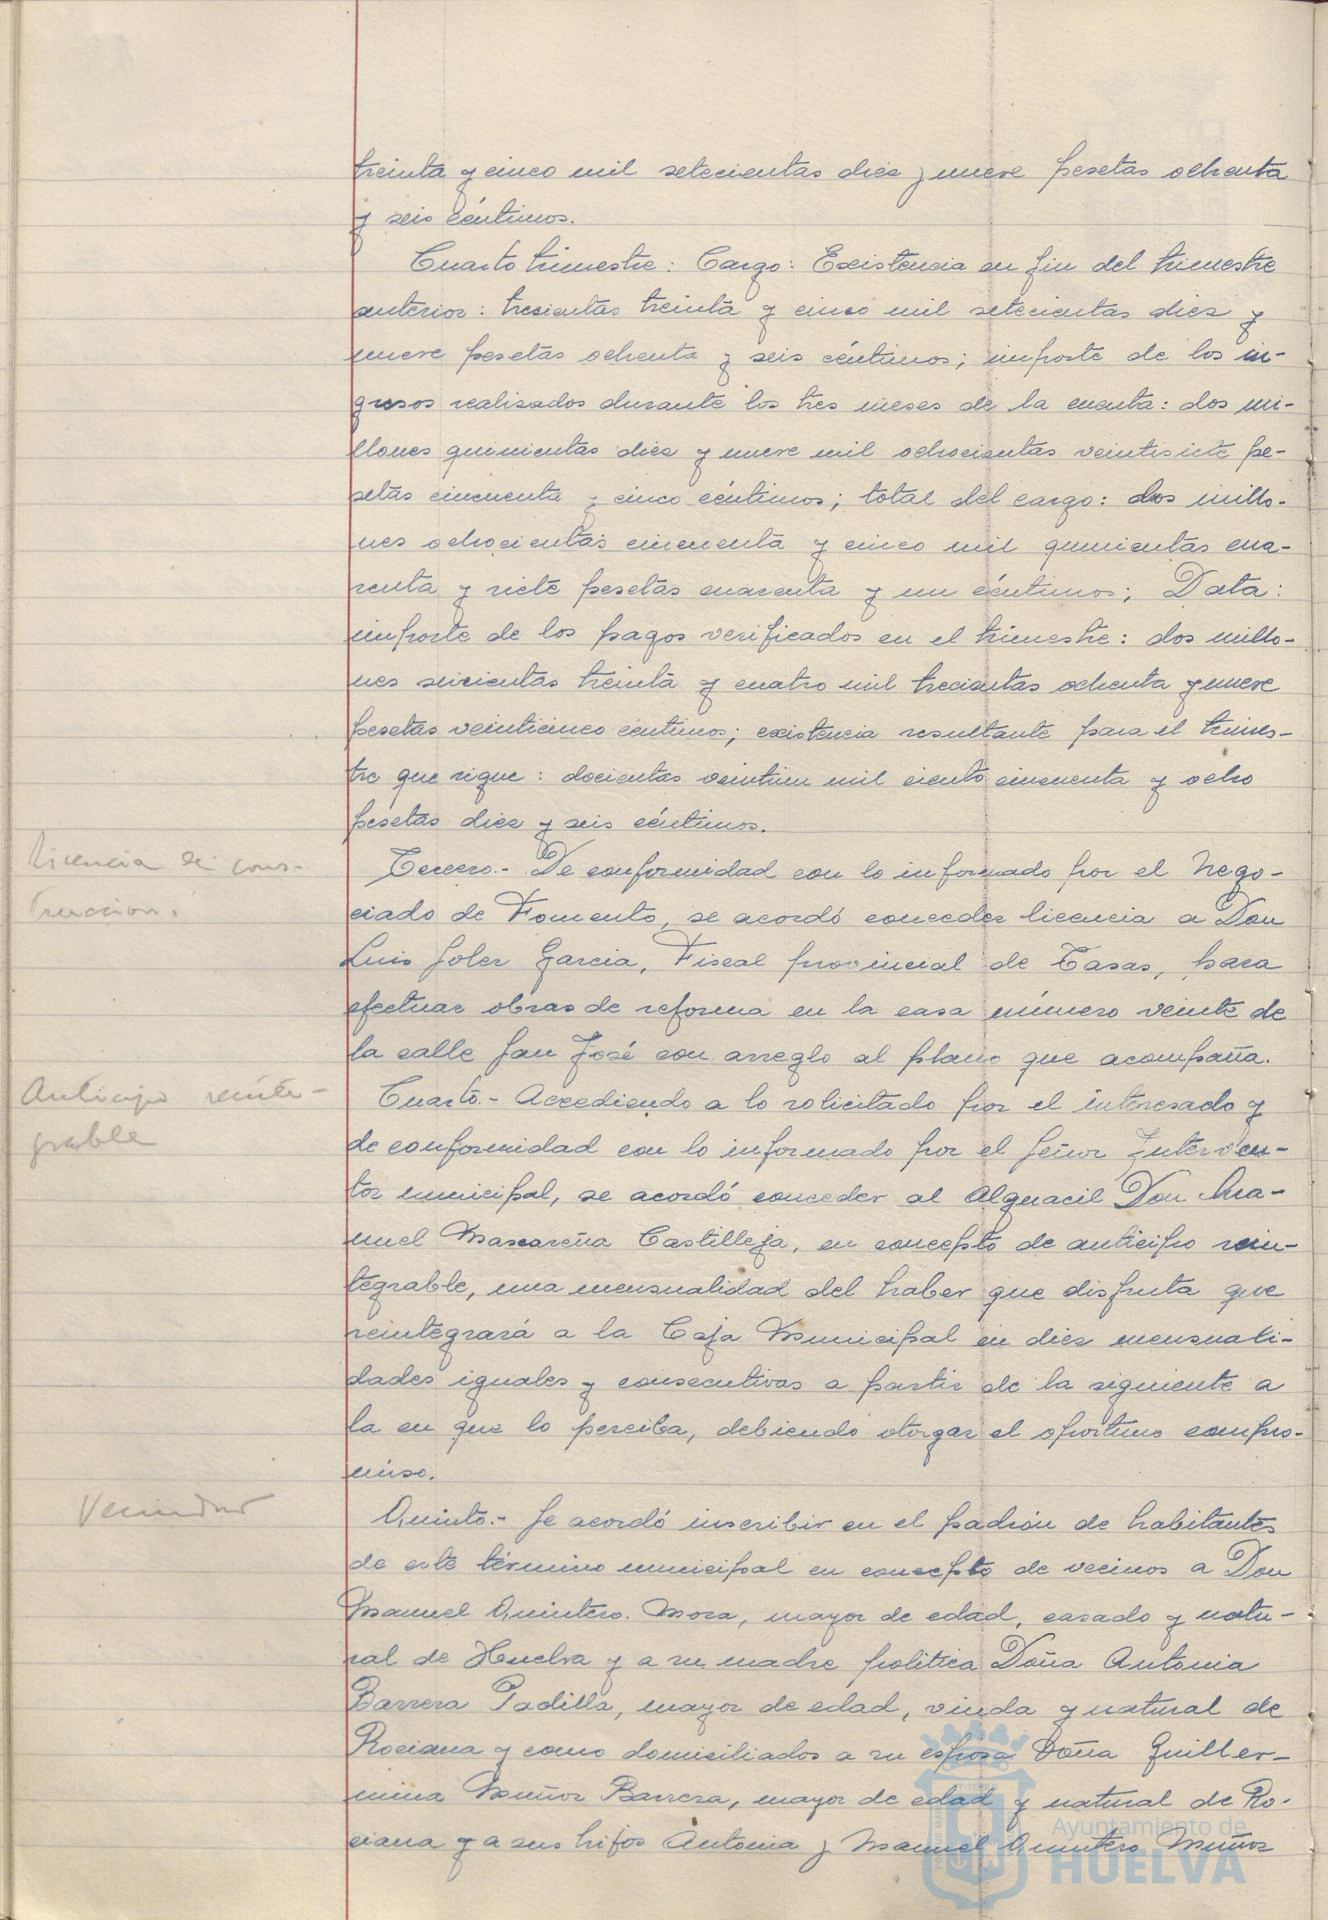 treinta y cinco mil setecientas diez y nueve pesetas ochenta
y seis céntimos.
Cuarto trimestre: Cargo: Existencia en fin del trimestre
anterior: trescientas treinta y cinco mil setecientas diez y
nueve pesetas ochenta y seis céntimos; importe de los in-
gresos realizados durante los tres meses de la cuenta: dos mi-
llones quinientas diez y nueve mil ochocientas veintisiete pe-
setas cincuenta y cinco céntimos; total del cargo: dos millo-
nes ochocientas cincuenta y cinco mil quinientas cua-
renta y siete pesetas cuarenta y un céntimos; Data:
importe de los pagos verificados en el trimestre: dos millo-
nes seiscientas treinta y cuatro mil trescientas ochenta y nueve
pesetas veinticinco céntimos; existencia resultante para el trimes-
tre que sigue: docientas veintiun mil ciento cincuenta y ocho
pesetas diez y seis céntimos.
Licencia de cons-
truccion.
Tercero.- De conformidad con lo informado por el Nego-
ciado de Fomento, se acordó conceder licencia a Don
Luis Soler Garcia, Fiscal provincial de Tasas, para
efectuar obras de reforma en la casa número veinte de
la calle San José con arreglo al plano que acompaña.
Anticipo reinte-
grable
Cuarto.- Accediendo a lo solicitado por el interesado y
de conformidad con lo informado por el Señor Interven-
tor municipal, se acordó conceder al Alguacil Don Ma-
nuel Mascareña Castilleja, en concepto de anticipo rein-
tegrable, una mensualidad del haber que disfruta que
reintegrará a la Caja Municipal en diez mensuali-
dades iguales y consecutivas a partir de la siguiente a
la en que lo perciba, debiendo otorgar el oportuno compro-
miso.
Vecindad
Quinto.- Se acordó inscribir en el padrón de habitantes
de este término municipal en concepto de vecinos a Don
Manuel Quintero Mora, mayor de edad, casado y natu-
ral de Huelva y a su madre política Doña Antonia
Barrera Padilla, mayor de edad, viuda y natural de
Rociana y como domiciliados a su esposa Doña Guiller-
mina Muñoz Barrera, mayor de edad y natural de Ro-
ciana y a sus hijos Antonia y Manuel Quintero Muñoz
Ayuntamiento de
HUELVA